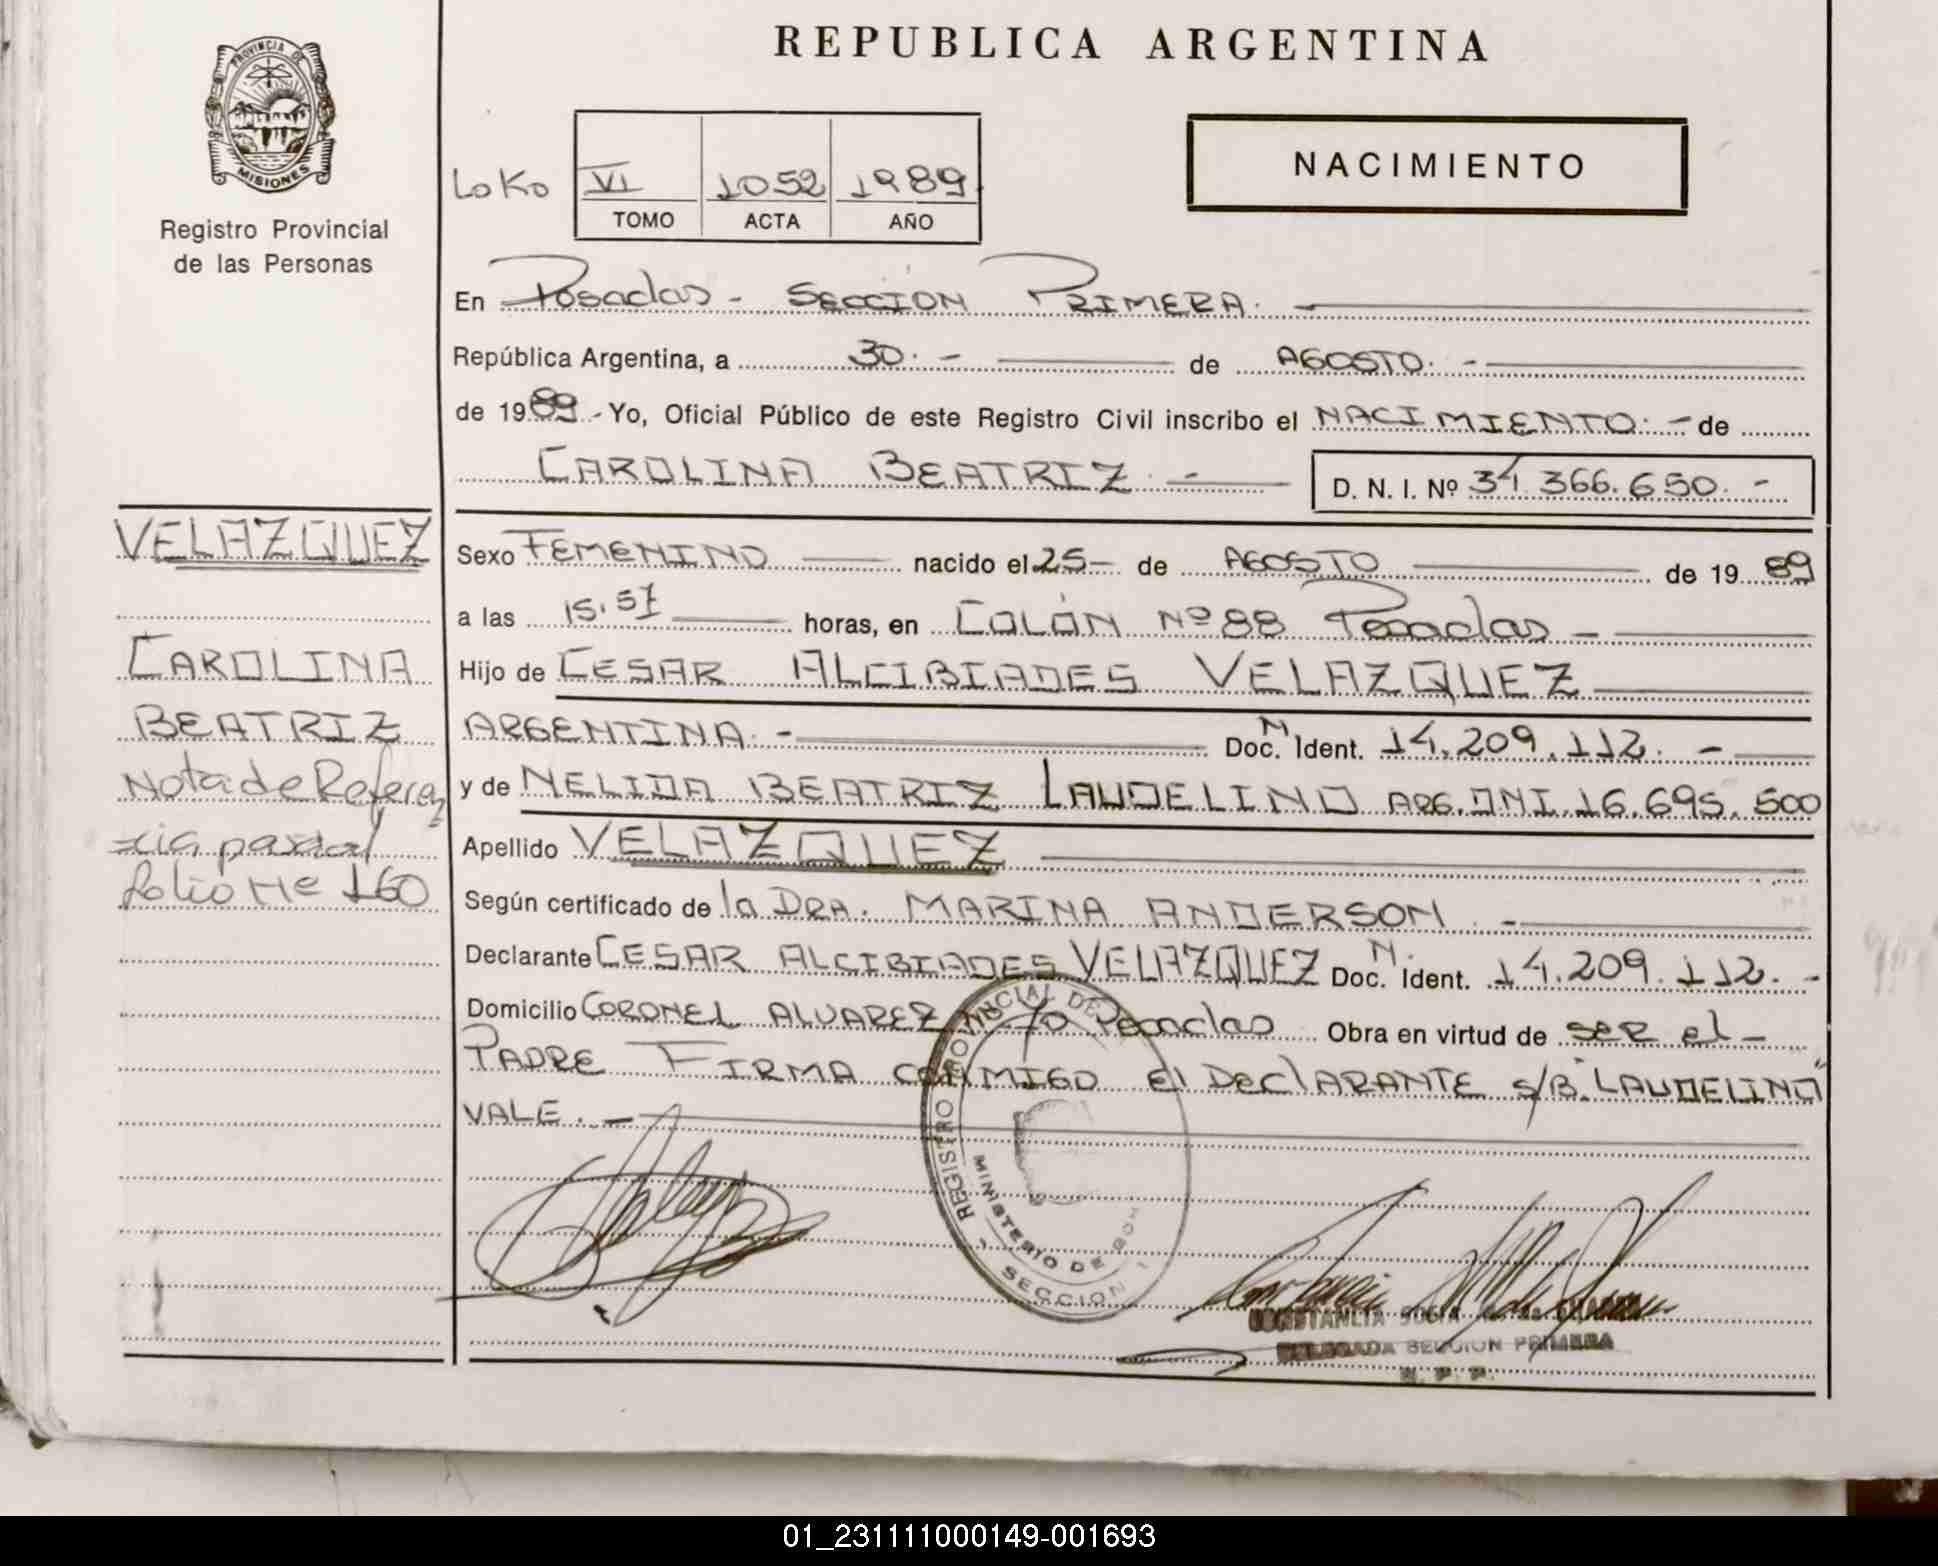 REPUBLICA ARGENTINA
PROVINCIA DE
MISIONES
Registro Provincial
de las Personas
NACIMIENTO
VI 1052 1989
TOMO ACTA AÑO
En Posadas - SECCION PRIMERA. -
República Argentina, a 30. - de AGOSTO. -
de 1989 - Yo, Oficial Público de este Registro Civil inscribo el NACIMIENTO. - de
CAROLINA BEATRIZ. - D. N. I. Nº 34.366.650. -
VELAZQUEZ
CAROLINA
BEATRIZ
Nota de Referen
cia parcial
folio Nº 160
Sexo FEMENINO nacido el 25- de AGOSTO de 1989
a las 15.57 horas, en COLÓN Nº 88 Posadas -
Hijo de CESAR ALCIBIADES VELAZQUEZ
ARGENTINA. - Doc. N Ident. 14.209.112. -
y de NELIDA BEATRIZ LAUDELINO ARG. DNI. 16.695.500
Apellido VELAZQUEZ
Según certificado de la DRA. MARINA ANDERSON. -
Declarante CESAR ALCIBIADES VELAZQUEZ Doc. N. Ident. 14.209.112. -
Domicilio CORONEL ALVAREZ Posadas Obra en virtud de SER el -
PADRE FIRMA CONMIGO El DEClARANTE S/B "LAUDELINO"
VALE. -
REGISTRO PROVINCIAL DE
MINISTERIO DE GOB
SECCION 1
CONSTANCIA
DELEGADA SECCION PRIMERA
R. P. P.
01_231111000149-001693